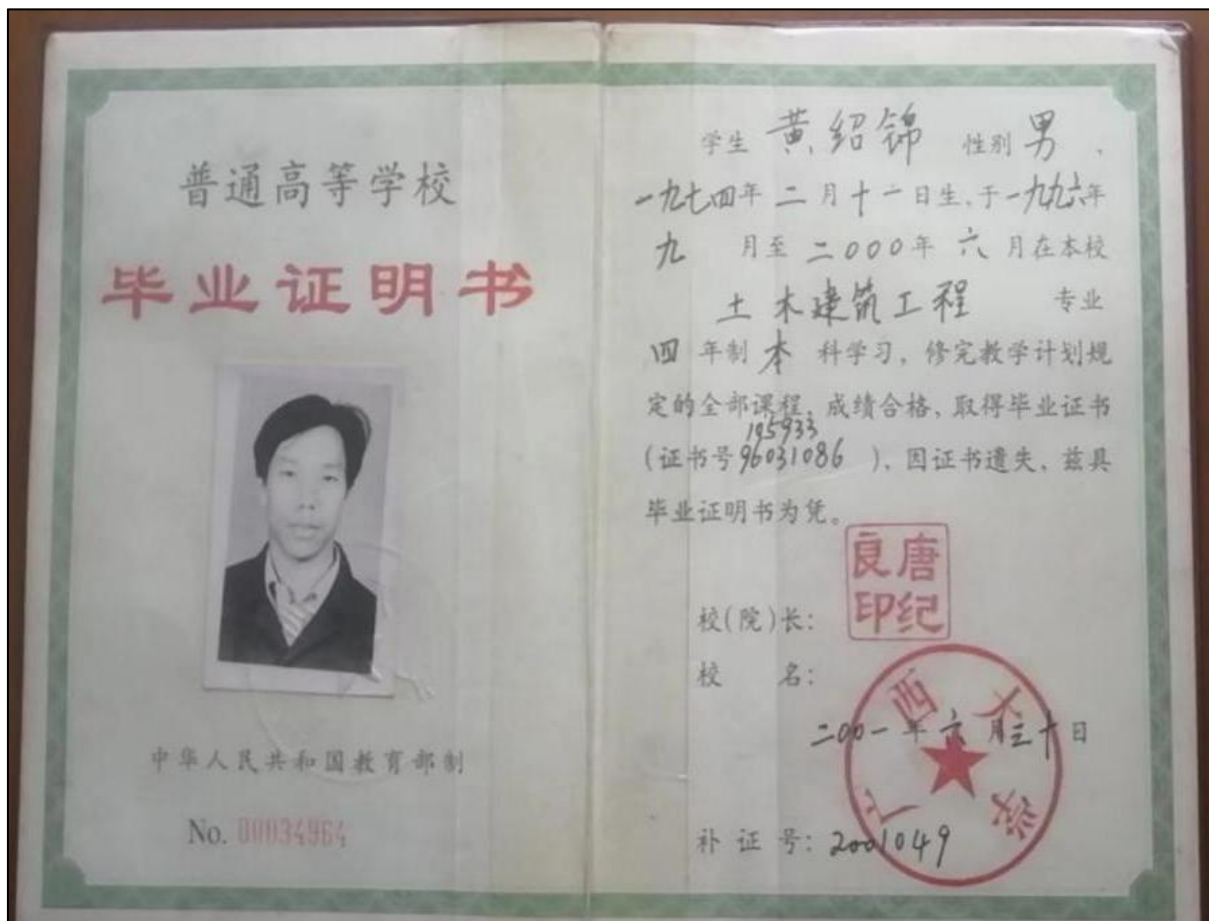 普通高等学校
毕业证明书
中华人民共和国教育部制
No. 00034964
学生 黄绍锦 性别 男 、
一九七四年 二 月 十一 日生,于 一九九六年
九 月至 二000年 六 月在本校
土木建筑工程 专业
四 年制 本 科学习,修完教学计划规
定的全部课程,成绩合格,取得毕业证书
195933
(证书号 96031086 ),因证书遗失,兹具
毕业证明书为凭。
唐纪良印
校(院)长:
校 名:
广西大学
二00一年六月三十日
补 证 号: 2001049